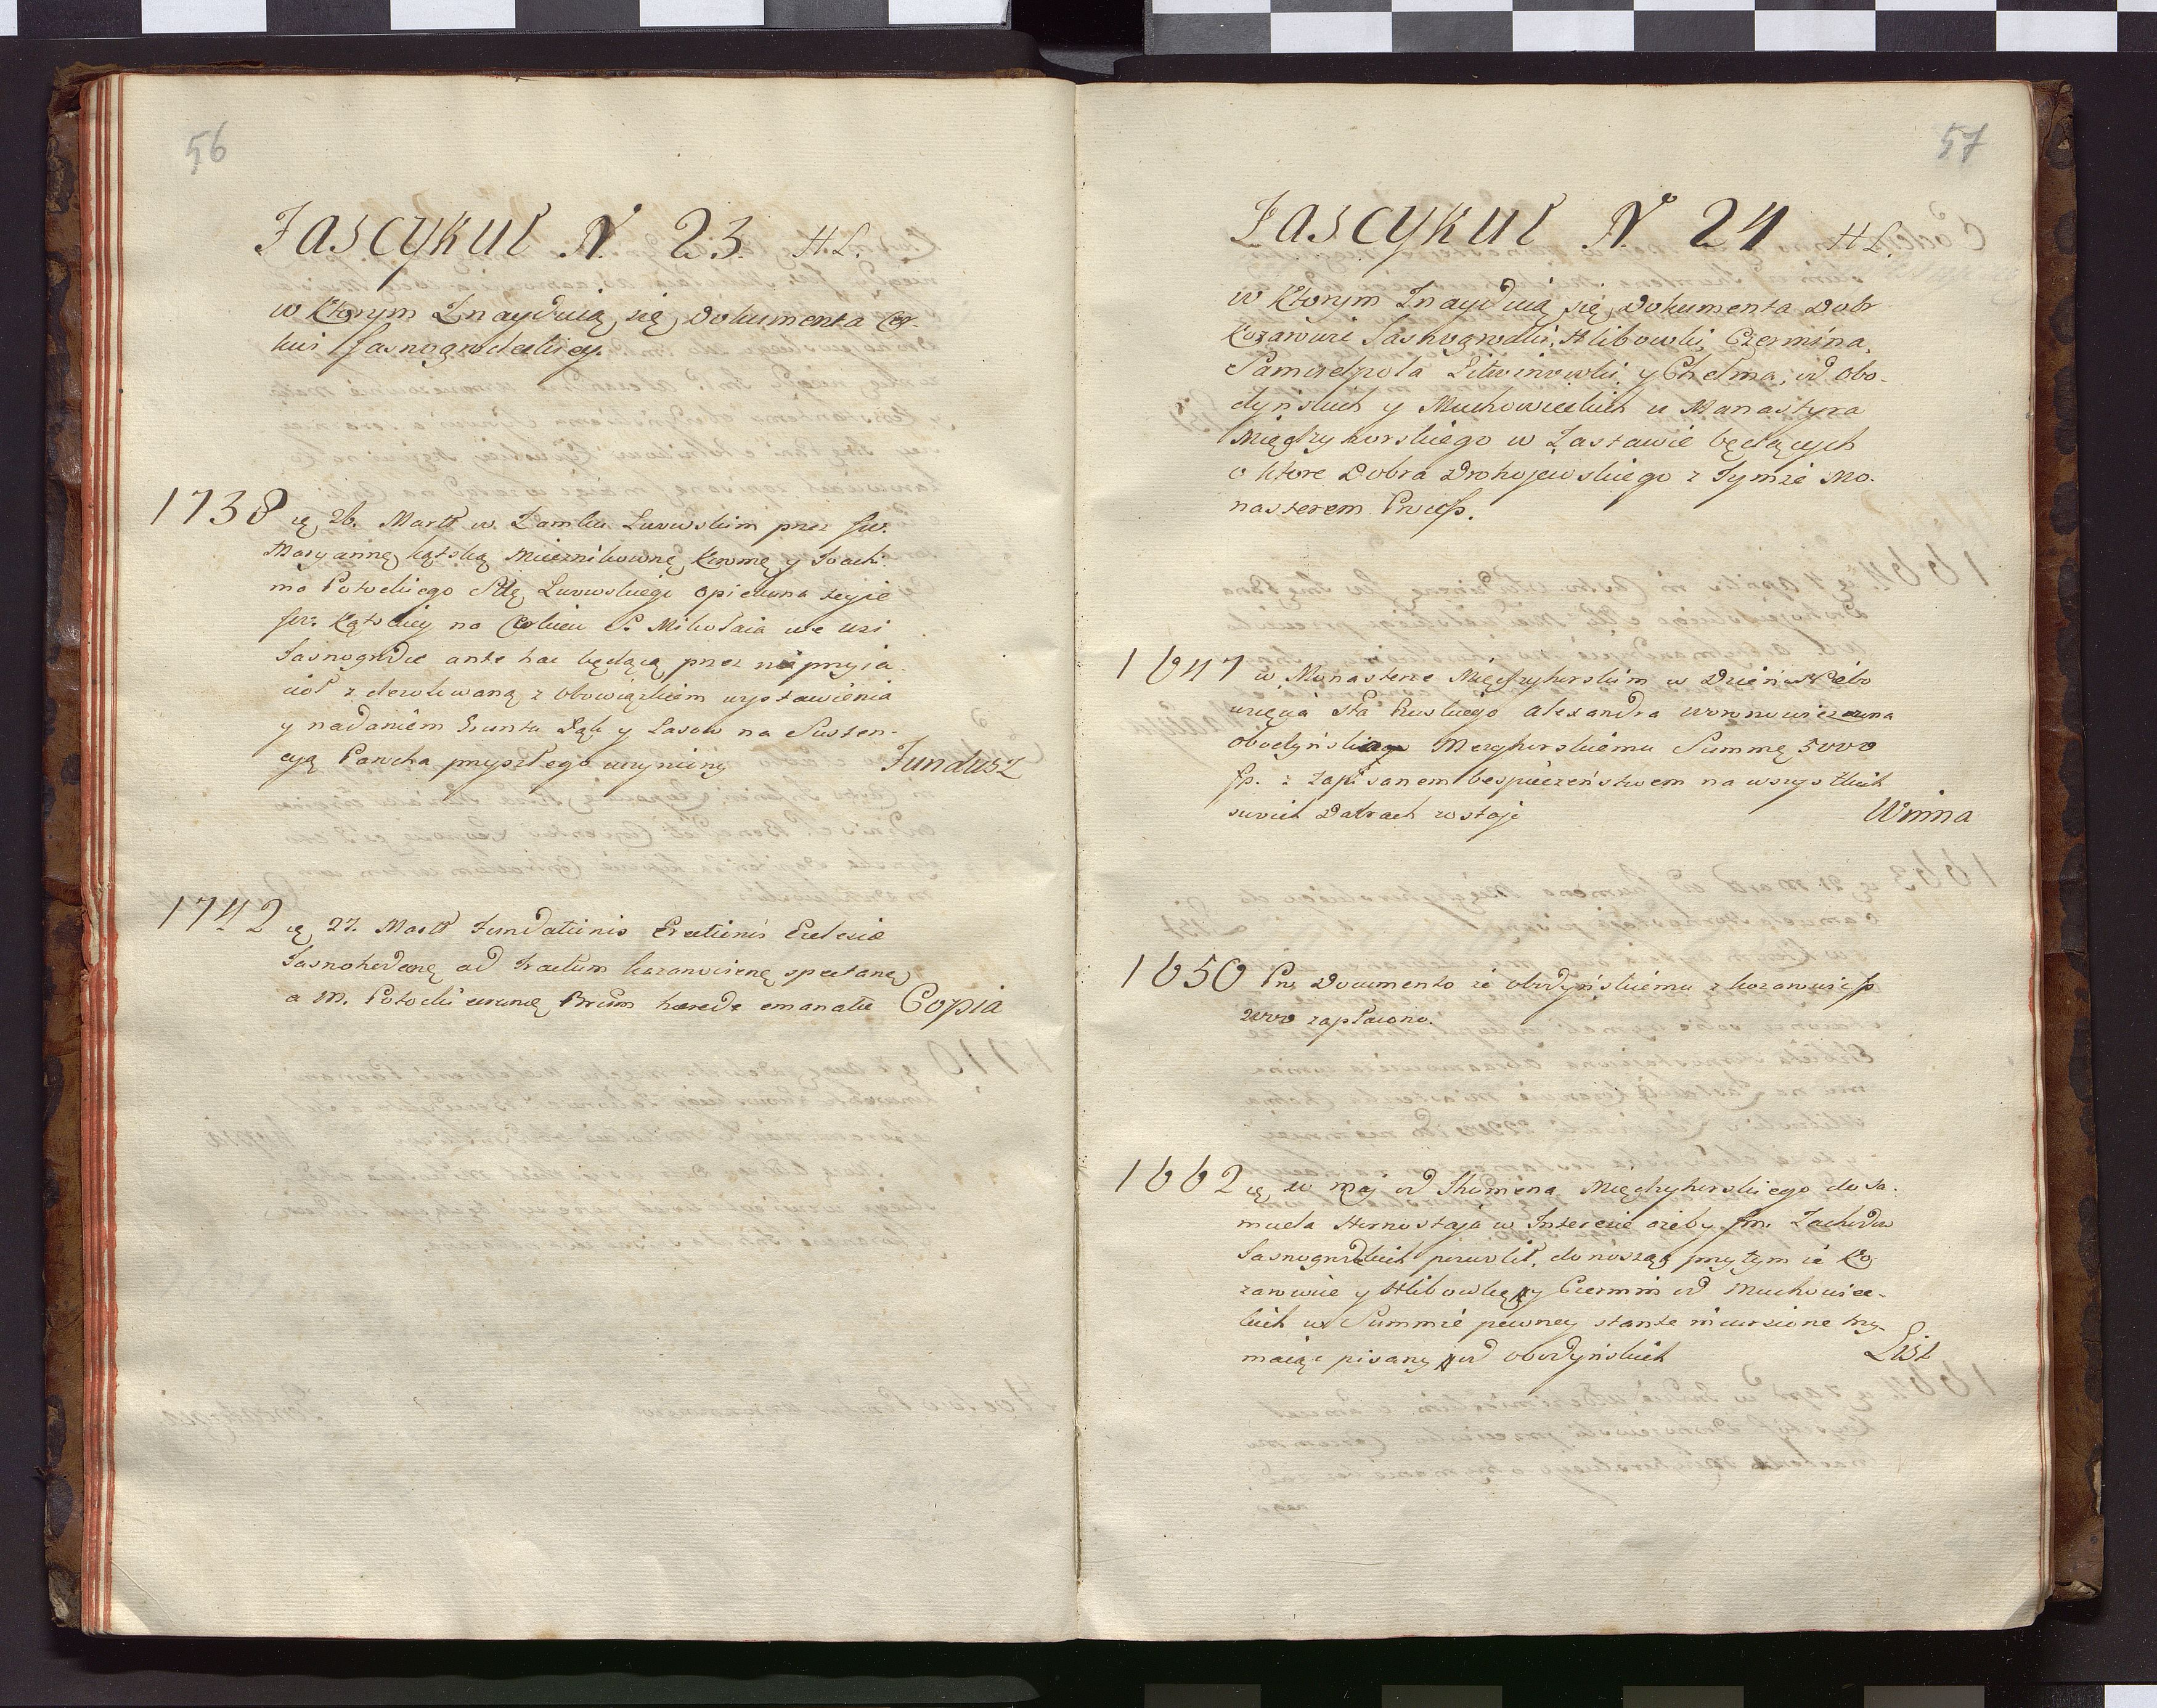 56
Fascykuł N. 23. H.L.
w Ktorym Znayduią się Dokumenta Cer-
kwi Jasnogrodeckiey.
1738 ę 26. Martii w Zamku Lwowskim przez Jw.
Maryannę kątską Miecznikownę Kronną y Joachi
ma Potockiego Stlę Lwowskiego opiekuna teyże
Jw. Kątskiey na Cerkiew S. Mikołaia we wsi
Jasnogrodce ante hac będącą przez nieprzyia
ciół z dezolowaną z obowiązkiem wystawienia
y nadaniem Gruntu Łąk y Lasow na Susten-
cyą Parocha przyszłego uczyniony Fundusz
1742 ę 27. Martii Fundationis Erectionis Eclesiæ
Jasnohrdcenę ad Tractum kazanoviense spectanę
a M. Potocki bonorum harede emanatæ Copia
57
Fascykuł N. 24 H.L.
w Ktorym Znayduią się Dokumenta Dobr
Kozarowic Jasnogrodki, Hlibowki, Czermina,
Samosełpola Litwinowki y Chełma, od Obo-
dyńskich y Muchowieckich u Manastyra
Międzyhorskiego w Zastawie będących
o ktore Dobra Drohojewskiego z Tymże Mo-
nasterem Process.
1647 w Monasterze Międzyhorskim w Dzień Niebo
wzięcia Sta Ruskiego Alexandra Woronowiczowna
Obodyńska Mezyhorskiemu Summę 5000
fp. z zapisanem bespieczeństwem na wszystkich
swoich Dobrach zostaje Winna
1650 Prz. Documento że obodyńskiemu z kozarowic fp
2000 zapłacono.
1662 ę 20 Maj od Ihumena Międzyhorskiego do Sa-
muela Hornostaja w Interesie ażeby Jm. Zachodow
Jasnogrodzkich pozwolił, donosząc przytym że Ko
zarowice y Hlibowkę y Czermin od Muchowiec-
kich w Summie pewney stante incursione trzy-
maiąc pisany od obodyńskich List